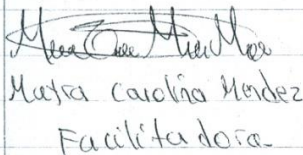 Mayra Carolina Mendez
Facilitadora